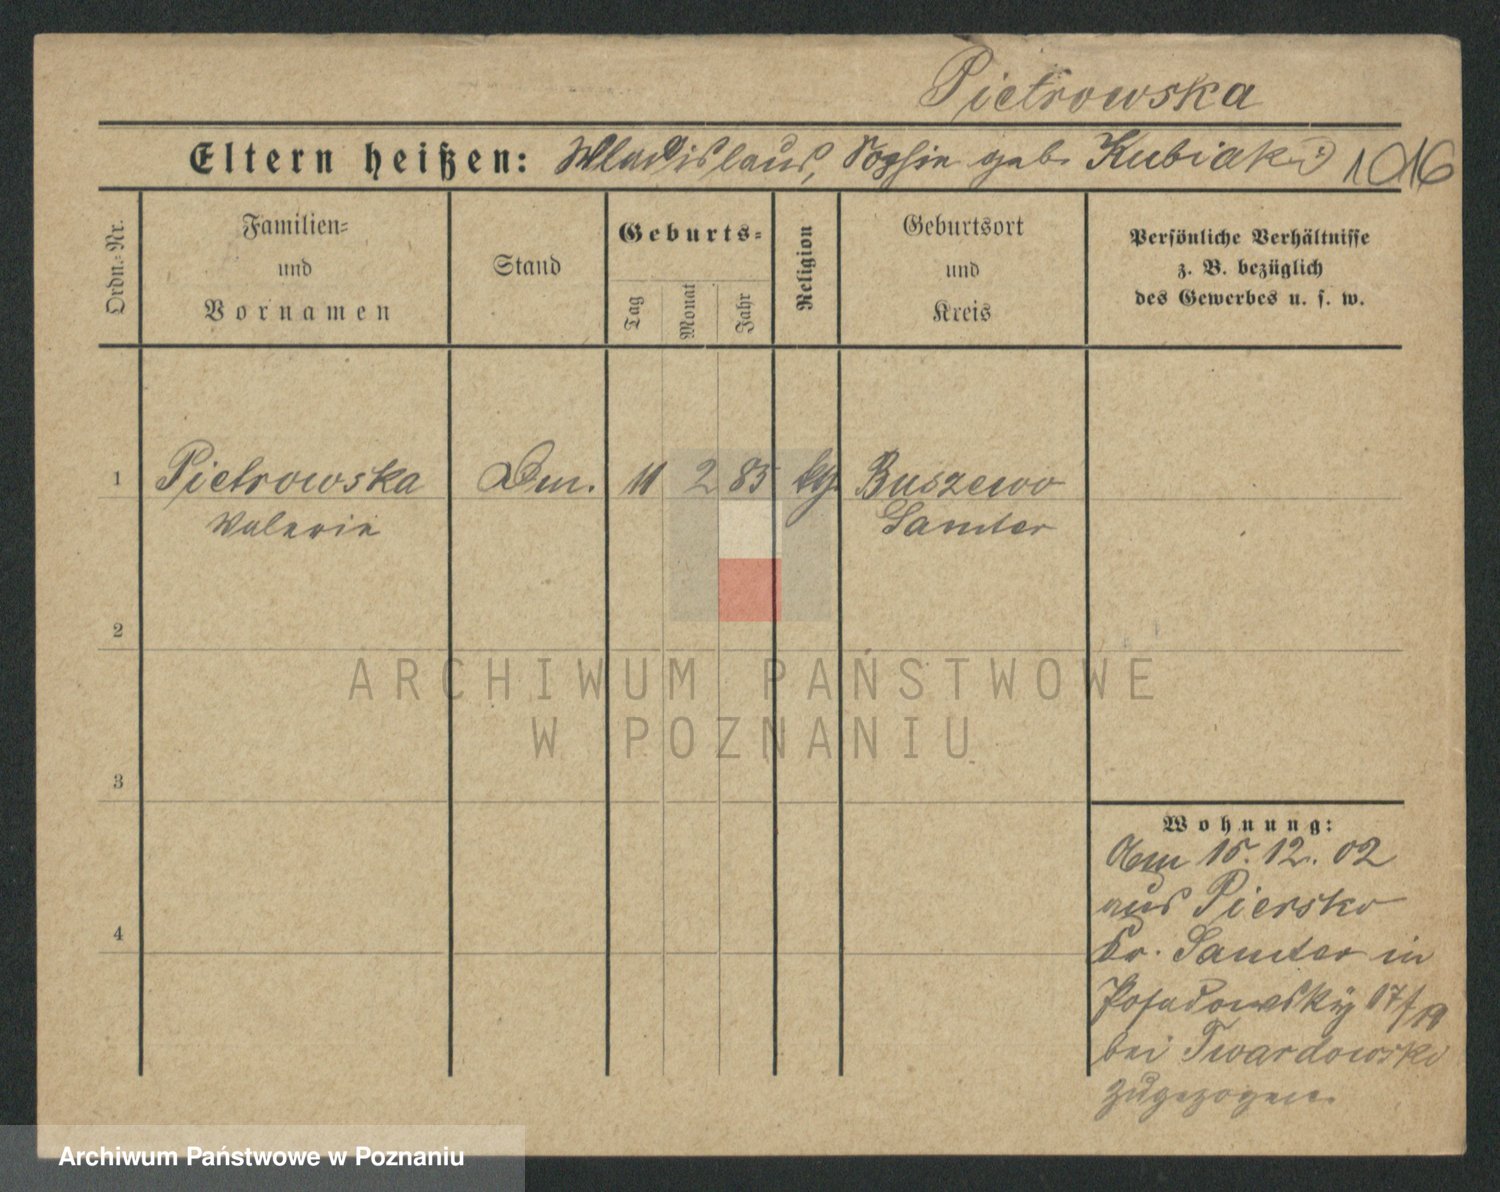 Pietrowska
Eltern heißen: Wladislaus, Sophie geb. Kubiak 1016
Ordn.-Nr.
Familien-
und
Vornamen
Stand
Geburts-
Tag
Monat
Jahr
Religion
Geburtsort
und
Kreis
Persönliche Verhältnisse
z. B. bezüglich
des Gewerbes u. s. w.
1 Pietrowska 11 2 85 Buszewo
Valerie Samter
2
3
4
Wohnung:
Am 15. 12. 02
aus Piersko
Kr. Samter in
Posadowsky 17/19
bei Twardowski
zugezogen.
ARCHIWUM PAŃSTWOWE
W POZNANIU
Archiwum Państwowe w Poznaniu